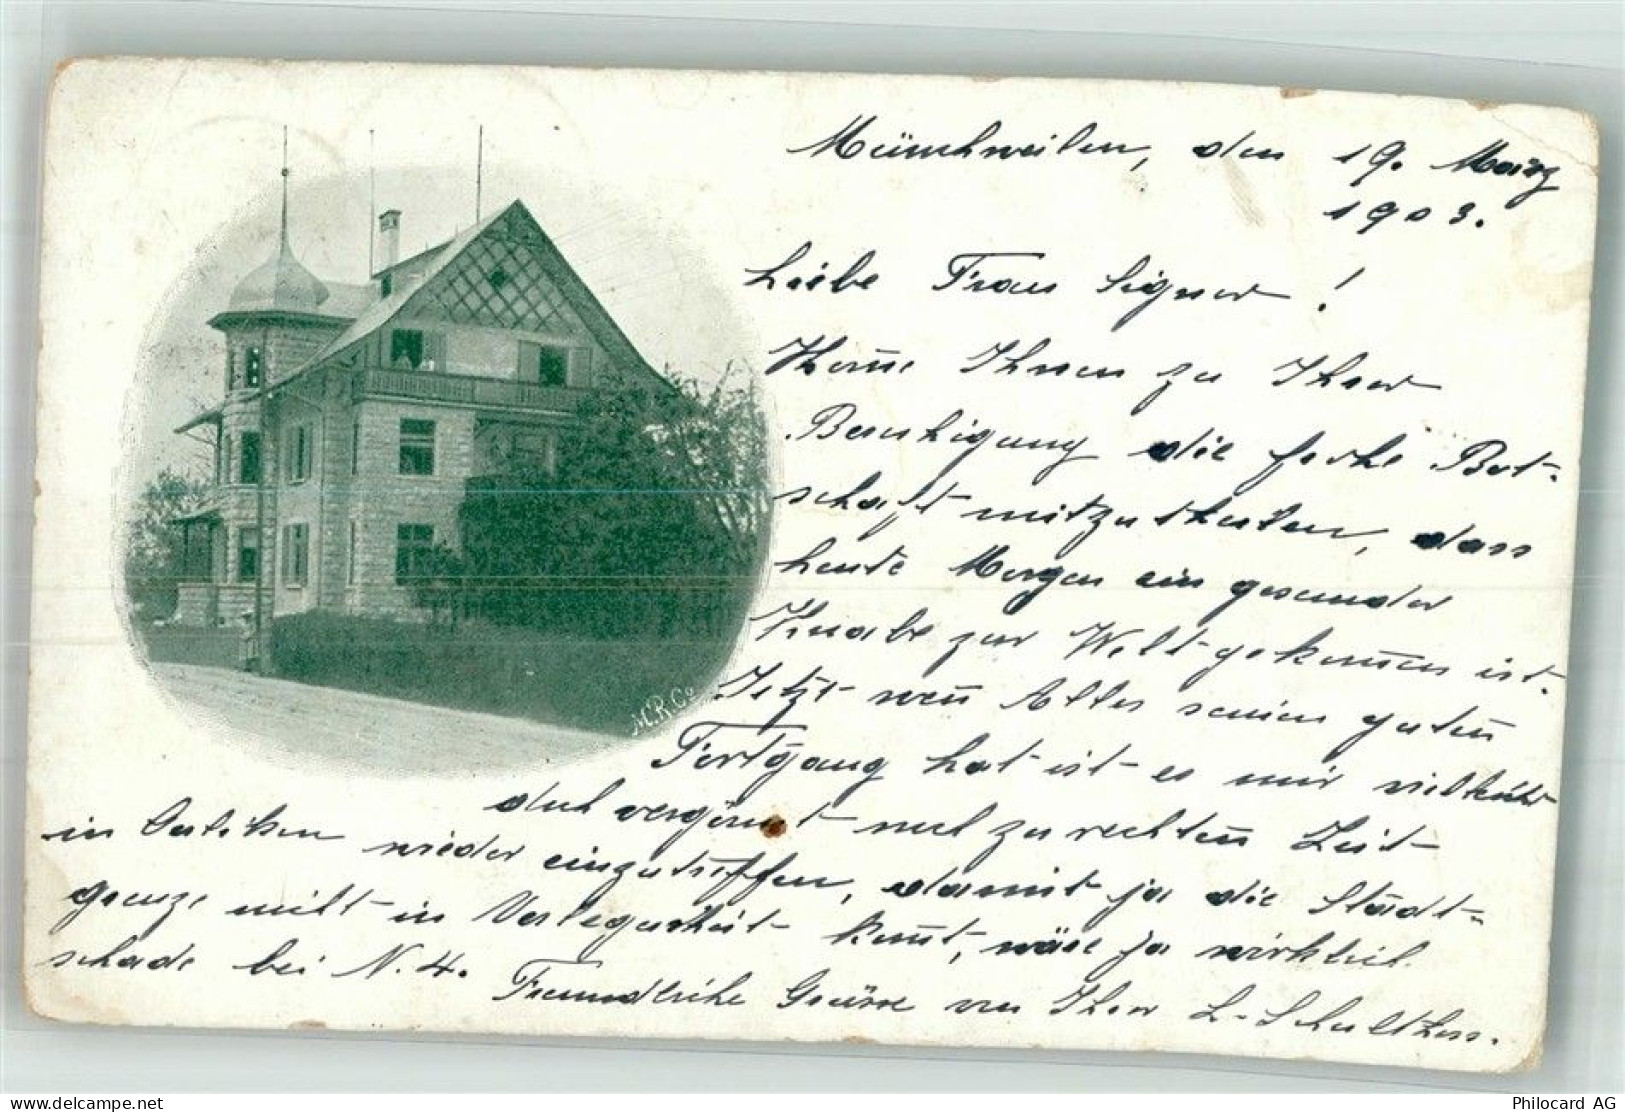 Münchweilen, den 19. März
1903.
Liebe Frau Signer!
Kom̄e Ihnen zu Ihrer
Beruhigung die frohe Bot-
schaft mitzutheilen, dass
heute Morgen ein gesunder
Knabe zur Welt gekom̄en ist.
Jetzt wen̄ Alles seinen guten
Fortgang hat ist es mir vielleicht
doch vergön̄t noch zu rechten Zeit
in wieder einzutreffen, damit ja die Städt-
grenze nicht in Verlegenheit kom̄t, wäre ja wirklich
schade bei N. 4. Freundliche Grüsse von Ihrer L. Schulthess.
M.R.Co
Philocard AG
delcampe.net